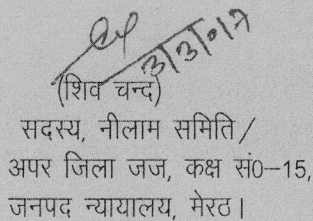 3/3/017
(शिव चन्द)
सदस्य, नीलाम समिति/
अपर जिला जज, कक्ष सं0-15,
जनपद न्यायालय, मेरठ।